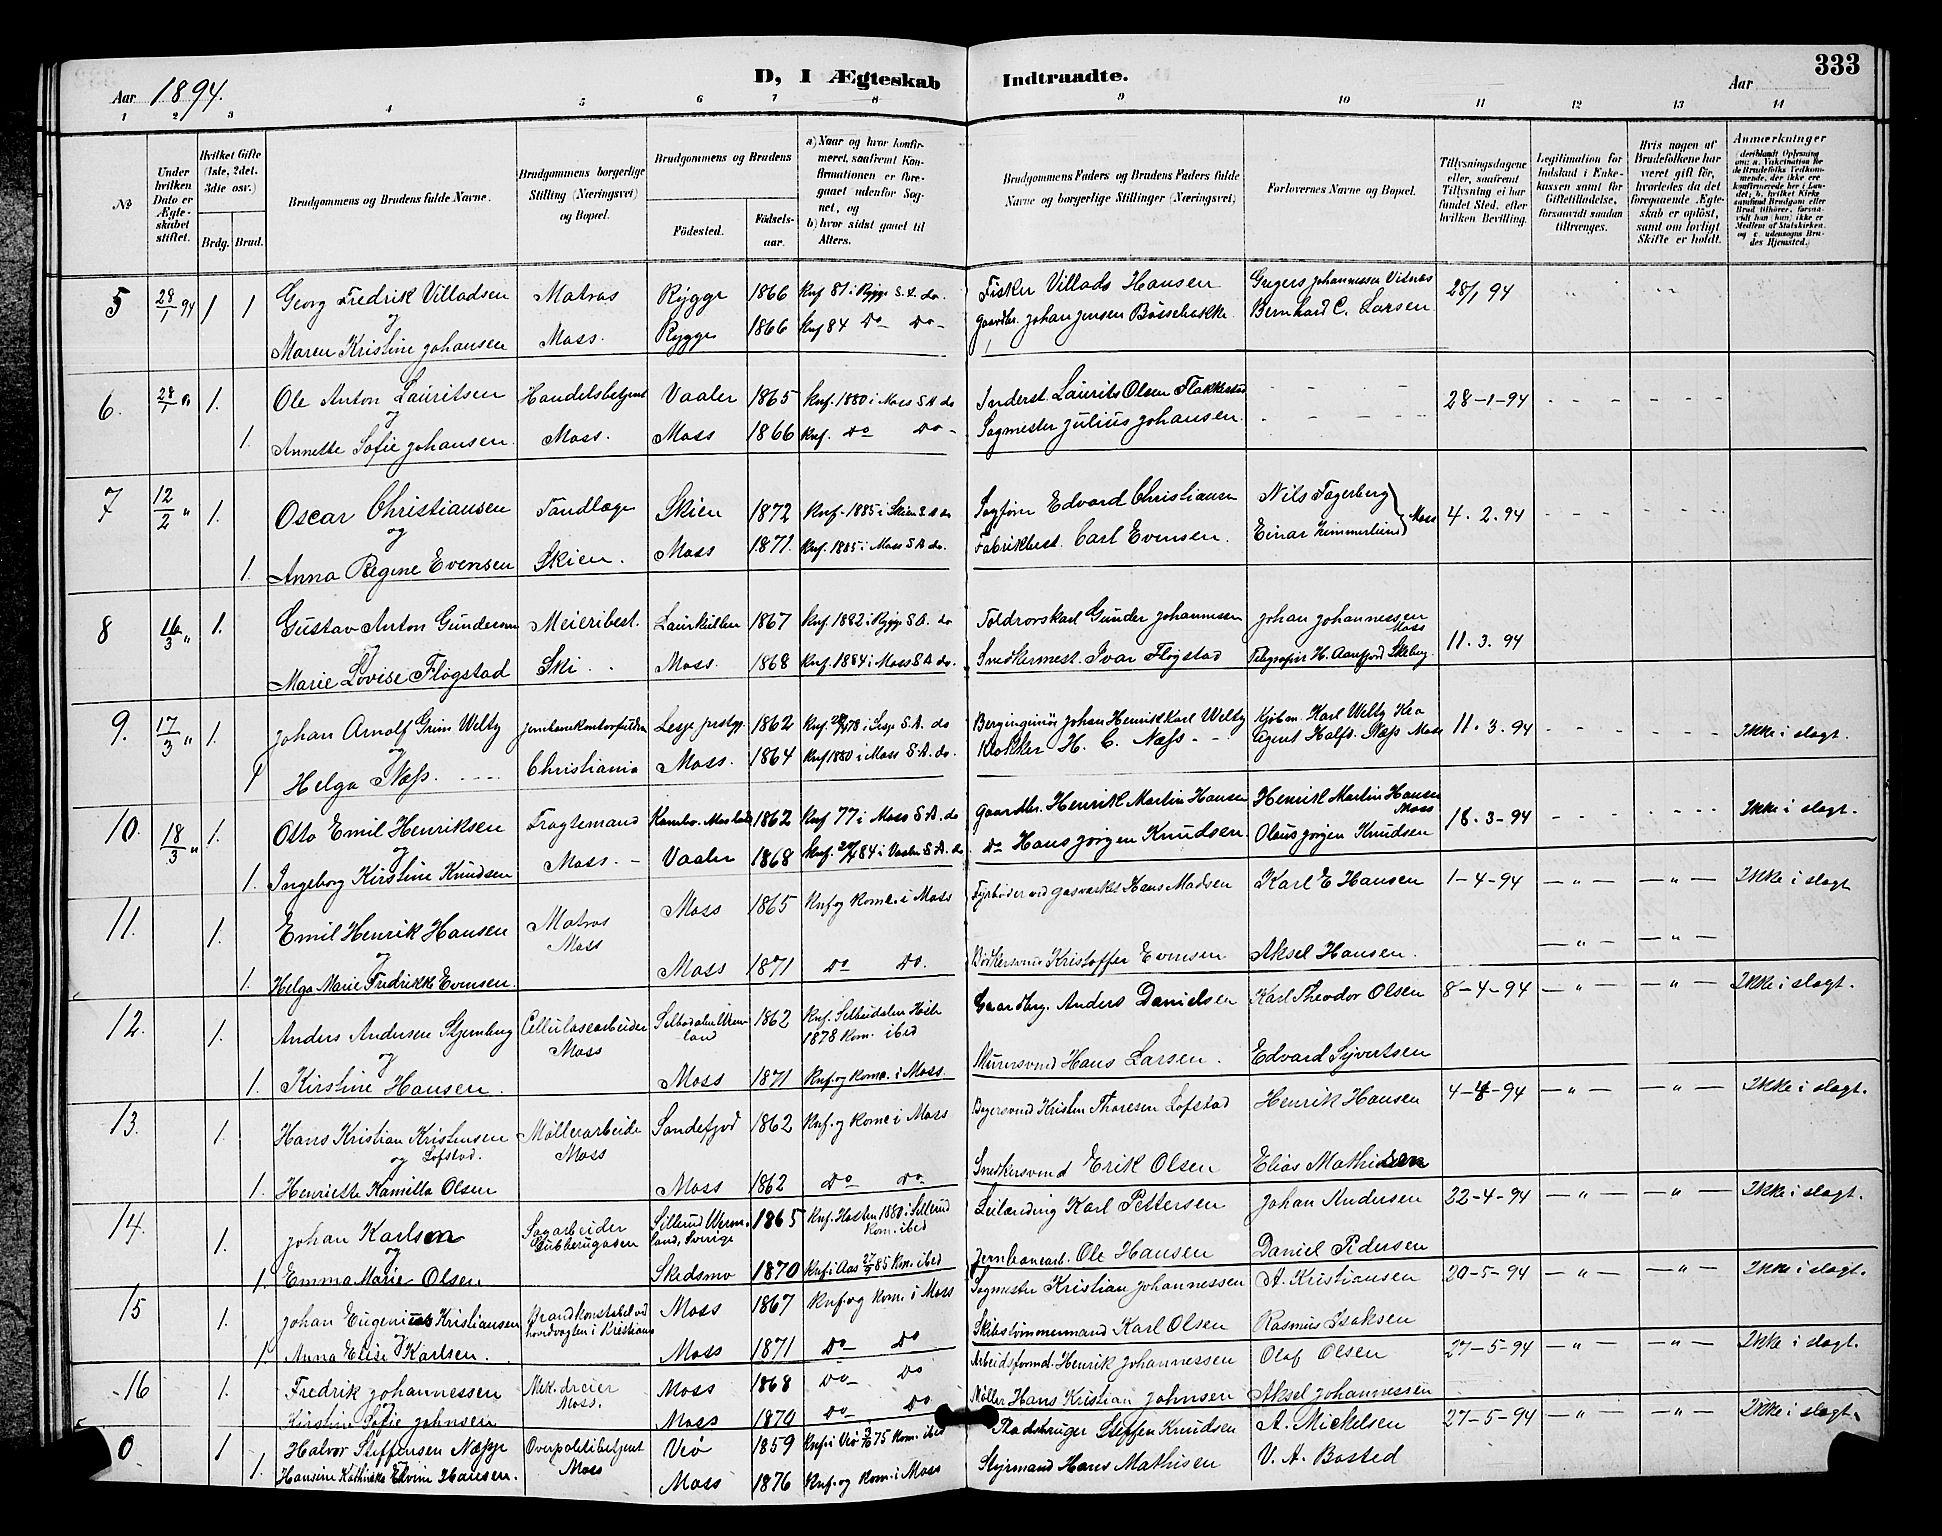 333
D, I Ægteskab Indtraadte.
Aar 1894. Aar
1 2 3 4 5 6 7 8 9 10 11 12 13 14
No
Under hvilken Dato er Ægteskabet stiftet.
Hvilket Gifte (1ste, 2det, 3die osv.)
Brdg. Brud.
Brudgommens og Brudens fulde Navne.
Brudgommens borgerlige Stilling (Næringsvei) og Bopæl.
Brudgommens og Brudens
Födested. Födselsaar.
a) Naar og hvor konfirmeret, saafremt Konfirmationen er foregaaet udenfor Sognet, og
b) hvor sidst gaaet til Alters.
Brudgommens Faders og Brudens Faders fulde Navne og borgerlige Stillinger (Næringsvei)
Forlovernes Navne og Bopæl.
Tillysningsdagene eller, saafremt Tillysning ei har fundet Sted, efter hvilken Bevilling.
Legitimation for Indskud i Enkekassen samt for Giftetilladelse, forsaavidt saadan tiltrænges.
Hvis nogen af Brudefolkene har været gift för, hvorledes da det foregaaende Ægteskab er oplöst, samt om lovligt Skifte er holdt.
Anmærkninger
5 28/1 94 1 1 Georg Fredrik Villadsen Matros Rygge 1866 Knf 81 i Rygge S. A. do. Fisker Villads Hansen Gregers Johannessen Vidnæs 28/1 94
og
Maren Kristine Johansen Moss. Rygge 1866 Knf 84 Do Do- Gaardbr. Johan Jensen Bössebakke. Bernhard C. Larsen
6. 28/1 " 1. Ole Anton Lauritsen Handelsbetjent Vaaler 1865 Knf. 1880 i Moss S A do Inderst Laurits Olsen Flakkestad - - - 28-1-94
og
1. Annette Sofie Johansen Moss. Moss 1866 Knf. Do Do- Sagmester Julius Johansen. - - - -
7 12/2 " 1. Oscar Christiansen Tandlæge Skien 1872 Knf. 1885 i Skien S A do Sagförer Edvard Christiansen Nils Fagerberg Moss 4. 2. 94
og
1. Anna Regine Evensen Skien. Moss 1871. Knf. 1885 i Moss S A do. Fabrikbest. Carl Evensen. Einar Zimmerlund
8 16/3 " 1. Gustav Anton Gundersen Meieribest. Laurkullen 1867 Knf. 1882 i Rygge S A. do Toldrorskarl Gunder Johannessen Johan Johannessen Moss 11. 3. 94
og
Marie Lovise Flögstad Ski - - Moss. 1868 Knf. 1884 i Moss S A do. Snedkermest. Ivar Flögstad Telegrafist H. Aanfjord Skeberg.
9. 17/3 " 1. Johan Arnolf Grim Weltz Jernbanekontorfuldm Lesje prstgj. 1862 Knf 78 i Lesje S. A. do Bergingeniör Johan Henrik Karl Weltz Kjöbm. Karl Weltz Kra 11. 3. 94 Ikke i slægt.
og
1 Helga Næss - - - Christiania Moss. 1864 Knf 1880 i Moss S. A. do. Klokker H. C. Næss - - Agent Halfd. Næss Moss
10. 18/3 " 1. Otto Emil Henriksen Fragtemand Kambo. Moss lands 1862 Knf 77 i Moss S. A. do Gaardbr. Henrik Martin Hansen Henrik Martin Hansen Moss 18. 3-94 Ikke i slægt.
og
1. Ingeborg Kirstine Knudsen Moss. - Vaaler 1868 Knf. 84 i Vaaler S. A. do Do Hans Jörgen Knudsen Olaus Jörgen Knudsen
11. 1. Emil Henrik Hansen Matros Moss Moss 1865 Knf og kom. i Moss Fyrböder ved gasværket Hans Madsen Karl E Hansen 1-4-94 - " - - " - Ikke i slægt
og
1. Helga Marie Fredrikke Evensen Moss 1871 Do Do. Bödkersvend Kristoffer Evensen Aksel Hansen. - " - - " -
12. 1. Anders Andersen Stjernberg Cellulosearbeider Moss Selbodalen Wermland 1862 Knf. Selbodalen Höst 1878 kom. ibid Gaardbrg. Anders Danielsen Karl Theodor Olsen 8-4-94 - " - - " - Ikke i slægt.
og
1. Kirstine Hansen. Moss 1871 Knf. og kom. i Moss. Murersvend Hans Larsen. Edvard Syvertsen
13. 1. Hans Kristian Kristensen Löfstad. Möllerarbeide Moss Sandefjod 1862 Knf. og kom i Moss Bagersvend Kristen Thoresen Löfstad Henrik Hansen 4-4-94 - " - - " - Ikke i slægt.
og
1. Henriette Kamilla Olsen Moss 1862 Do Do Snedkersvend Erik Olsen Elias Mathisen
14. 1. Johan Karlsen Sagarbeider Sillerud Wermland, Sverige 1865 Knf. Hösten 1880 i Sillerud kom. ibid Leilænding Karl Pettersen Johan Andersen 22-4-94 - " - - " - Ikke i slægt.
og
1. Emma Marie Olsen Skedsmo 1870 Knf i Aas 85 kom. ibid Jernbanearb. Ole Hansen Daniel Pedersen
15 1. Johan Eugenius Kristiansen Brandkonstabel ved hovedvagten i Kristiania Moss 1867 Knf. og kom. i Moss Sagmester Kristian Johannessen A. Kristiansen 20-5-94 - " - - " - Ikke i slægt.
og
1 Anna Elise Karlsen. Moss 1871 Do Do Skibstömmermand Karl Olsen Rasmus Isaksen
16 1. Fredrik Johannessen Mek. dreier Moss. Moss 1868 Do- Do Arbeidsformd. Henrik Johannessen Olaf Olsen 27-5-94 - " - - " - Ikke i slægt.
og
Kirstine Sofie Johnsen Moss 1870 Do Do Möller Hans Kristian Johnsen Aksel Johannessen
0 1 Halvor Steffensen Næsje Overpolitibetjent Moss Verö 1859 Knf i Verö 75 kom. ibid Pladsbruger Steffen Knudsen A. Mickelsen 27-5-94 - " - - " - Ikke i slægt.
1. Hansine Kathinka Elvine Hansen. Moss 1876 Knf. og kom. i Moss Styrmand Hans Mathisen V. A. Bosted